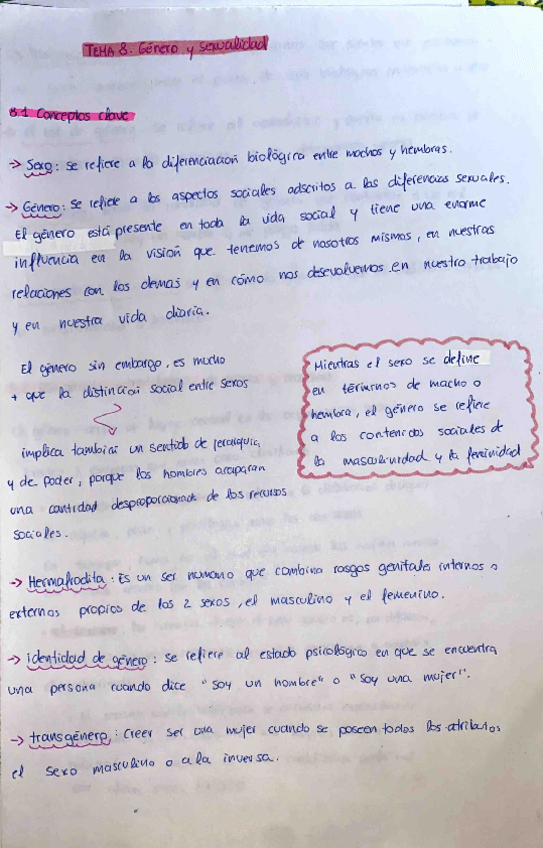 TEMA 8. Género y sexualidad
8.1 Conceptos clave
→ Sexo: se refiere a la diferenciación biológica entre machos y hembras.
→ Género: se refiere a los aspectos sociales adscritos a las diferencias sexuales.
El género está presente en toda la vida social y tiene una enorme
influencia en la visión que tenemos de nosotros mismos, en nuestras
relaciones con los demás y en cómo nos desevolvemos en nuestro trabajo
y en nuestra vida diaria.
El género sin embargo, es mucho
+ que la distinción social entre sexos
implica también un sentido de jerarquía,
y de poder, porque los hombres acaparan
una cantidad desproporcionada de los recursos
sociales.
Mientras el sexo se define
en términos de macho o
hembra, el género se refiere
a los contenidos sociales de
la masculinidad y la feminidad
→ Hermafrodita: Es un ser humano que combina rasgos genitales internos o
externos propios de los 2 sexos, el masculino y el femenino.
→ identidad de género: se refiere al estado psicológico en que se encuentra
una persona cuando dice "soy un hombre" o "soy una mujer".
→ transgénero: creer ser una mujer cuando se poseen todos los atributos
el sexo masculino o a la inversa.